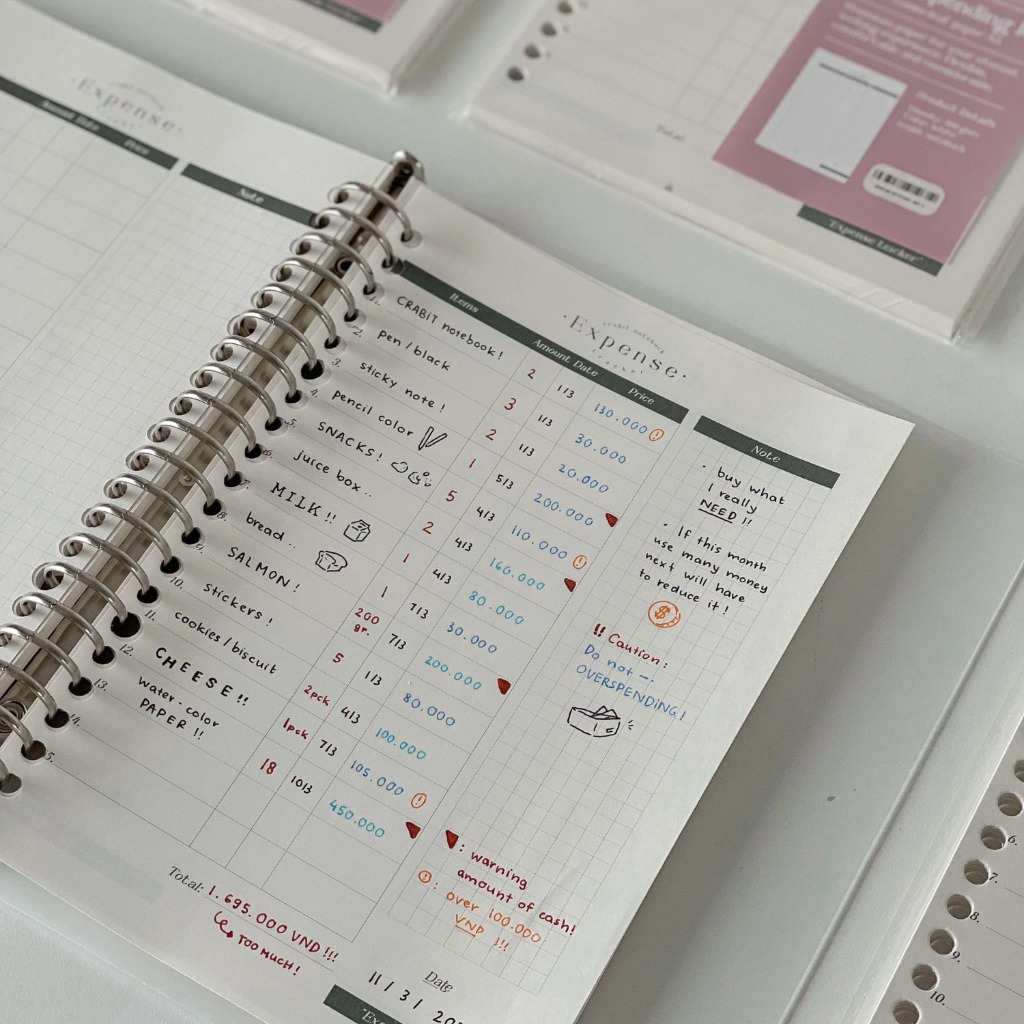 Expense
Price
Note
pending
Product Details
Total
"Expense Tracker"
crabit notebook
·Expense·
tracker
Items Amount Date Price
1. CRABIT notebook! 2 1/3 130.000
2. pen / black 3 1/3 30.000
3. sticky note! 2 1/3 20.000
4. pencil color 1 5/3 200.000
5. SNACKS! 5 4/3 110.000
6. juice box.. 2 4/3 160.000
7. MILK!! 1 4/3 80.000
8. bread.. 1 7/3 30.000
9. SALMON! 200 gr. 7/3 200.000
10. stickers! 5 1/3 80.000
11. cookies / biscuit 2pck 4/3 100.000
12. CHEESE!! 1pck 7/3 105.000
13. water-color
PAPER!! 18 10/3 450.000
14.
5.
Total: 1.695.000 VND!!!
TOO MUCH!
Note
• buy what
I really
NEED!!
• If this month
use many money
next will have
to reduce it!
$
!! Caution:
Do not –.
OVERSPENDING!
: warning
amount of cash!
: over 100.000
VND !!!
Date
11 / 3 / 20
6.
7.
8.
9.
10.